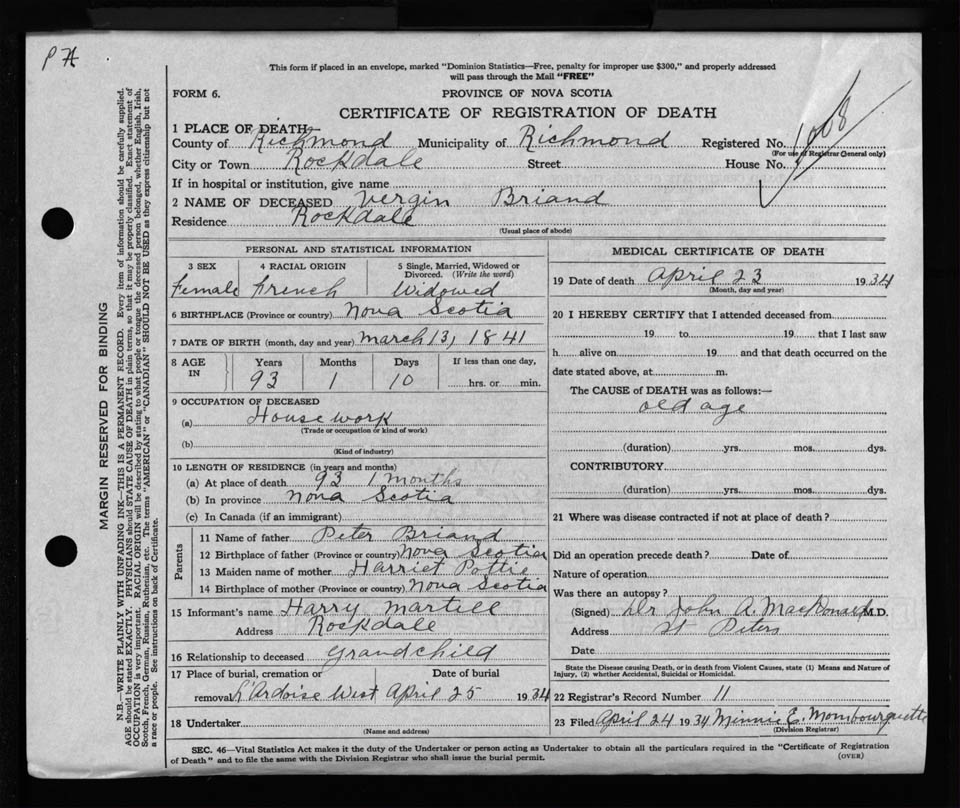 P H
This form if placed in an envelope, marked "Dominion Statistics—Free, penalty for improper use $300," and properly addressed
will pass through the Mail "FREE"
FORM 6.
PROVINCE OF NOVA SCOTIA
CERTIFICATE OF REGISTRATION OF DEATH
1 PLACE OF DEATH—
County of Richmond Municipality of Richmond Registered No. 1008
(For use of Registrar General only)
City or Town Rockdale Street House No.
If in hospital or institution, give name
2 NAME OF DECEASED Vergin Briand
Residence Rockdale
(Usual place of abode)
PERSONAL AND STATISTICAL INFORMATION
3 SEX 4 RACIAL ORIGIN 5 Single, Married, Widowed or
Divorced. (Write the word)
Female French Widowed
6 BIRTHPLACE (Province or country) Nova Scotia
7 DATE OF BIRTH (month, day and year) March 13, 1841
8 AGE IN Years Months Days If less than one day,
93 1 10 hrs. or min.
9 OCCUPATION OF DECEASED
(a) House work
(Trade or occupation or kind of work)
(b)
(Kind of industry)
10 LENGTH OF RESIDENCE (in years and months)
(a) At place of death 93 1 months
(b) In province Nova Scotia
(c) In Canada (if an immigrant)
Parents
11 Name of father Peter Briand
12 Birthplace of father (Province or country) Nova Scotia
13 Maiden name of mother Harriet Pottie
14 Birthplace of mother (Province or country) Nova Scotia
15 Informant's name Harry Martell
Address Rockdale
16 Relationship to deceased Grandchild
17 Place of burial, cremation or Date of burial
removal L'Ardoise West April 25 1934
18 Undertaker
(Name and address)
MEDICAL CERTIFICATE OF DEATH
19 Date of death April 23 1934
(Month, day and year)
20 I HEREBY CERTIFY that I attended deceased from
19 to 19 that I last saw
h alive on 19 and that death occurred on the
date stated above, at m.
The CAUSE of DEATH was as follows:—
old age
(duration) yrs. mos. dys.
CONTRIBUTORY
(duration) yrs. mos. dys.
21 Where was disease contracted if not at place of death?
Did an operation precede death? Date of
Nature of operation
Was there an autopsy?
(Signed) Dr John A. MacDonald M.D.
Address St Peters
Date
State the Disease causing Death, or in death from Violent Causes, state (1) Means and Nature of
Injury, (2) whether Accidental, Suicidal or Homicidal.
22 Registrar's Record Number 11
23 Filed April 24 1934 Minnie E. Mombourquette
(Division Registrar)
SEC. 46—Vital Statistics Act makes it the duty of the Undertaker or person acting as Undertaker to obtain all the particulars required in the "Certificate of Registration
of Death" and to file the same with the Division Registrar who shall issue the burial permit.
(OVER)
MARGIN RESERVED FOR BINDING
N.B.—WRITE PLAINLY WITH UNFADING INK—THIS IS A PERMANENT RECORD. Every item of information should be carefully supplied.
AGE should be stated EXACTLY. PHYSICIANS should STATE CAUSE OF DEATH in plain terms, so that it may be properly classified. Exact statement of
OCCUPATION is very important. RACIAL ORIGIN will be described by stating to what people or tongue the deceased person belonged, whether English, Irish,
Scotch, French, German, Russian, Ruthenian, etc. The terms "AMERICAN" or "CANADIAN" SHOULD NOT BE USED as they express citizenship but not
a race or people. See instructions on back of Certificate.